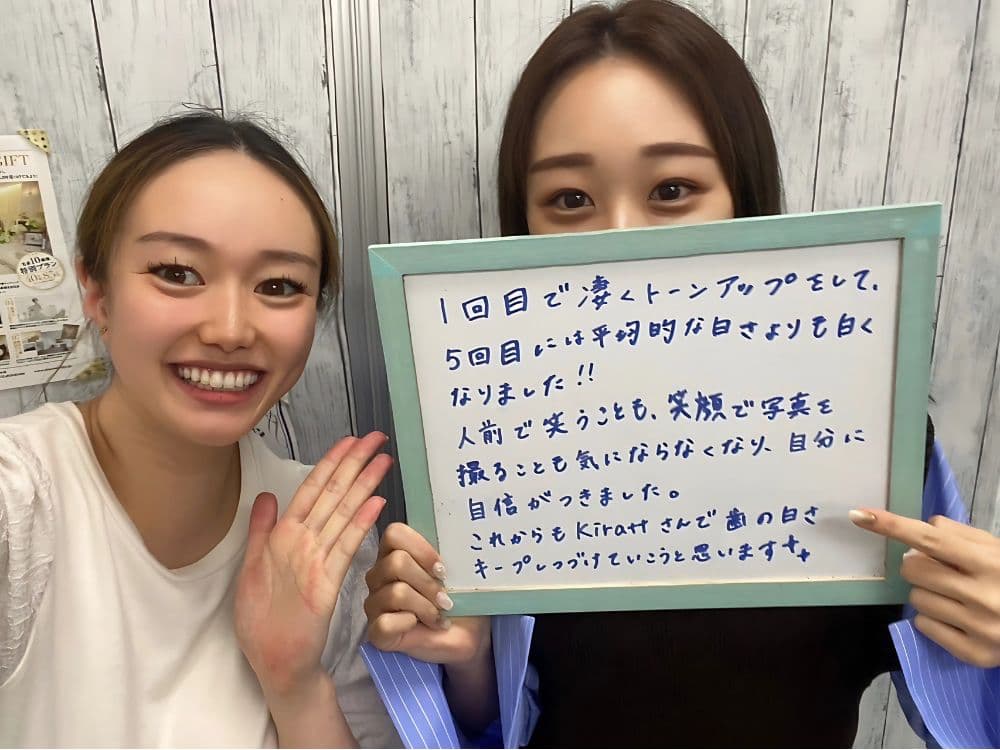 GIFT
10
特別プラン
1回目で凄くトーンアップをして、
5回目には平均的な白さよりも白く
なりました!!
人前で笑うことも、笑顔で写真を
撮ることも気にならなくなり、自分に
自信がつきました。
これからもKirattさんで歯の白さ
キープしつづけていこうと思います